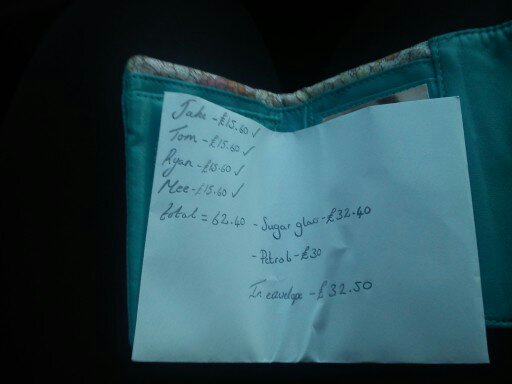 Jake - £15.60 ✓
Tom - £15.60 ✓
Ryan - £15.60 ✓
Mee - £15.60 ✓
total = 62.40 - Sugar glass - £32.40
- Petrol - £30
In envelope - £32.50